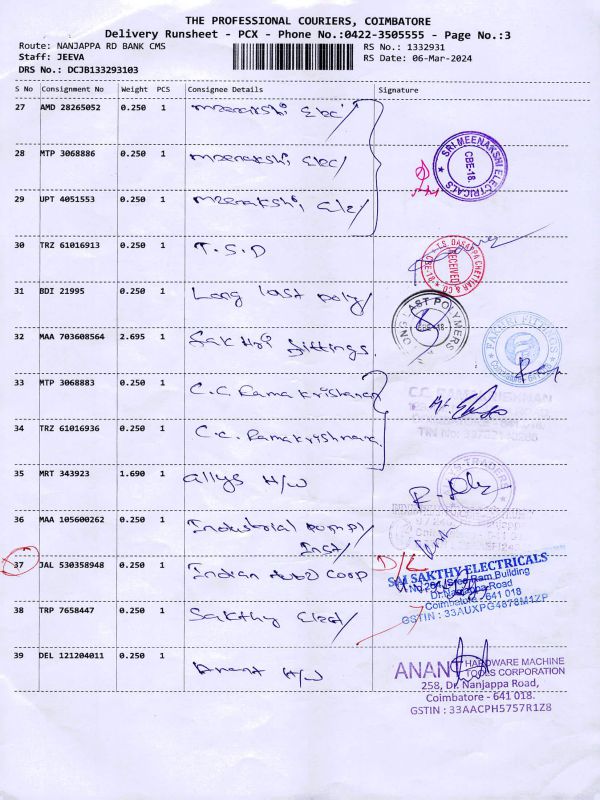 THE PROFESSIONAL COURIERS, COIMBATORE
Delivery Runsheet - PCX - Phone No.:0422-3505555 - Page No.:3
Route: NANJAPPA RD BANK CMS
RS No.: 1332931
Staff: JEEVA
RS Date: 06-Mar-2024
DRS No.: DCJB133293103
S No Consignment No Weight PCS Consignee Details Signature
27 AMD 28265052 0.250 1 Meenakshi Elec/
28 MTP 3068886 0.250 1 Meenakshi, Elec/
SRI MEENAKSHI ELECTRICALS
CBE-18.
29 UPT 4051553 0.250 1 Meenakshi, Ele/
30 TRZ 61016913 0.250 1 T.S.D
T.S. DASAPPA CHETTIAR & CO
RECEIVED
CBE-18
31 BDI 21995 0.250 1 Long last poly/
LONG LAST POLYMERS
CBE-18
32 MAA 703608564 2.695 1 Sakthi fittings
33 MTP 3068883 0.250 1 C.C. Ramakrishanan
34 TRZ 61016936 0.250 1 C.C. Ramakrishnan
35 MRT 343923 1.690 1 allys H/W
36 MAA 105600262 0.250 1 Industrial pump/
Inst/
37 JAL 530358948 0.250 1 Indian Auto Coop
D/L
SAI SAKTHY ELECTRICALS
Dr. Nanjappa Road
Coimbatore - 641 018
GSTIN : 33AUXPG4878M1ZP
38 TRP 7658447 0.250 1 Sakthy Elect/
39 DEL 121204011 0.250 1 Anant H/W
ANANT HARDWARE MACHINE
TOOLS CORPORATION
258, Dr. Nanjappa Road,
Coimbatore - 641 018.
GSTIN : 33AACPH5757R1Z8